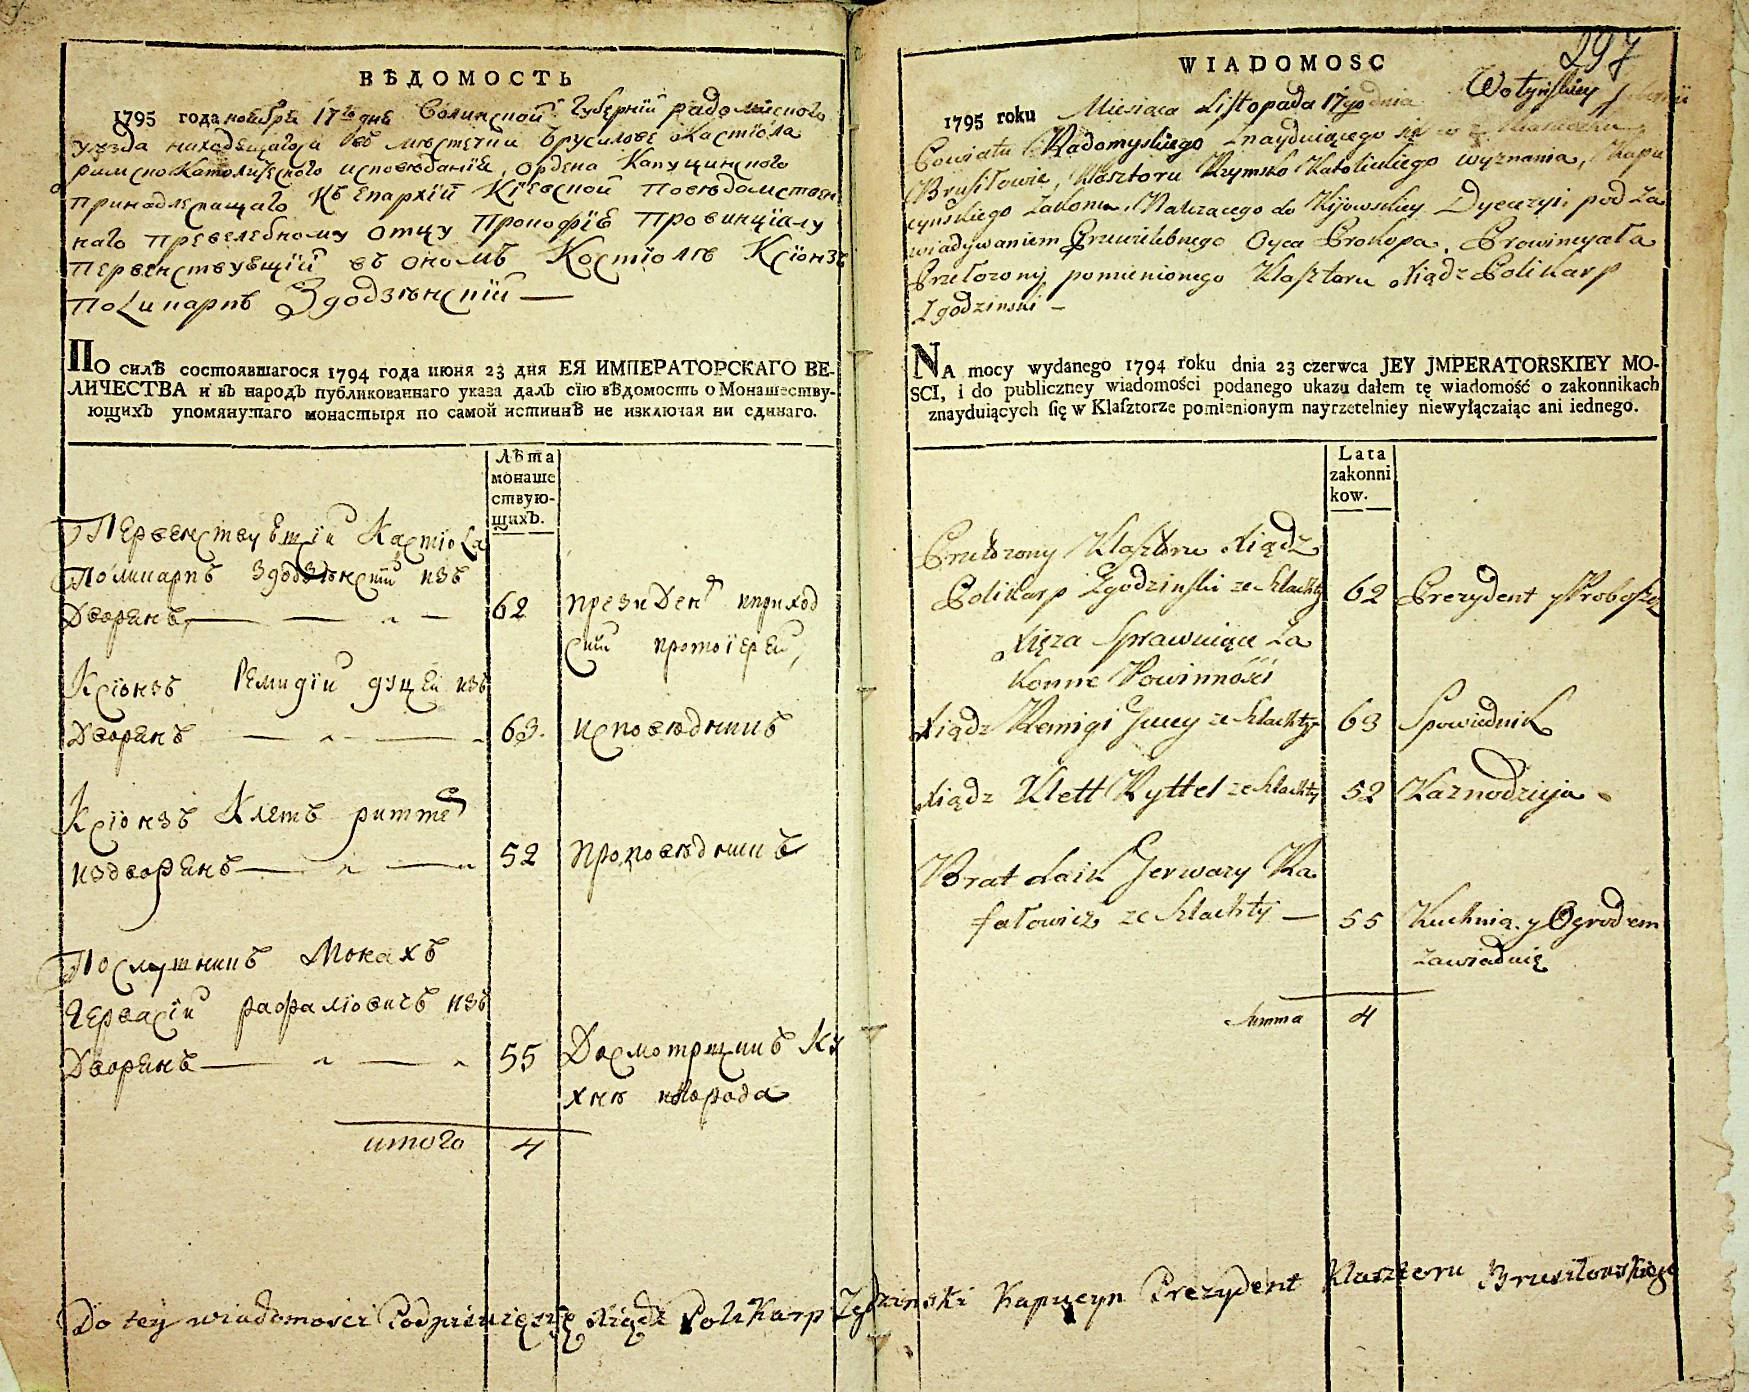 ВѢДОМОСТЬ
1795 года ноября 17го дня Волинской Губернїи радомиского
уезда находящагося въ местечки Брусилове Кастїола
римскокатолического исповѣданїй, ордена Капуцинского
принадлежащаго къ Епархїй Кїевской поведомствен
наго превелебному отцу Прокофїю Провинцїалу
первенствующїй въ ономъ Костїоле Ксїонзъ
Поликарпъ Здодзѣнский —
ПО СИЛѢ состоявшагося 1794 года июня 23 дня ЕЯ ИМПЕРАТОРСКАГО ВЕ-
ЛИЧЕСТВА и въ народъ публикованнаго указа далъ сїю вѣдомость о Монашеству-
ющихъ упомянутаго монастыря по самой истиннѣ не изключая ни единаго.
Лѣта
монаше
ствую-
щихъ.
Первенствующїй Кастїола
Поликарпъ Здодзѣнский изъ
Дворянъ — 62 президент иприход
ский протоїерей,
Ксїонзъ Ремидїй дуцей изъ
Дворянъ — 63. исповѣдникъ
Ксїонзъ Клетъ риттел
издворянъ — 52 проповѣдникъ
Послушникъ Монахъ
Гервасїй рафаловичъ изъ
Дворянъ — 55 Досмотрщикъ Ку
хнѣ
итого 4
WIADOMOSC
297
1795 roku Miesiąca Listopada 17go dnia Wołyńskiey
Powiatu Radomyskiego Znayduiącego się w Miasteczku
Brusiłowie, Klasztoru Rzymsko Katolickiego wyznania, Kapu
cyńskiego Zakonu, Nalezacego do Kijowskiey Dyecezyi pod Za
wiadywaniem Przewielebnego Oyca Prokopa, Prowincyała
Przełozony pomienionego Klasztoru Xiądz Polikarp
Zgodzinski —
NA mocy wydanego 1794 roku dnia 23 czerwca JEY JMPERATORSKIEY MO-
SCI, i do publiczney wiadomości podanego ukazu dałem tę wiadomość o zakonnikach
znayduiących się w Klasztorze pomienionym nayrzetelniey niewyłączaiąc ani iednego.
Lata
zakonni
kow.
Przełozony Klasztoru Xiądz
Polikarp Zgodzinski ze Szlachty 62 Prezydent y Proboszcz
Xięza Sprawuiące Za
konne Powinności
Xiądz Remigi Jucey ze Szlachty 63 Spowiednik
Xiądz Klett Ryttel ze Szlachty 52 Kaznodzieja
Brat Laik Jerwazy Ra
fałowicz ze Szlachty — 55 Kuchnią y Ogrodem
zawiaduię
Summa 4
Do tey wiadomosci Podpisuięsię Xiądz Polikarp Zgodzinski Kapucyn Prezydent Klasztoru Brusiłowskiego